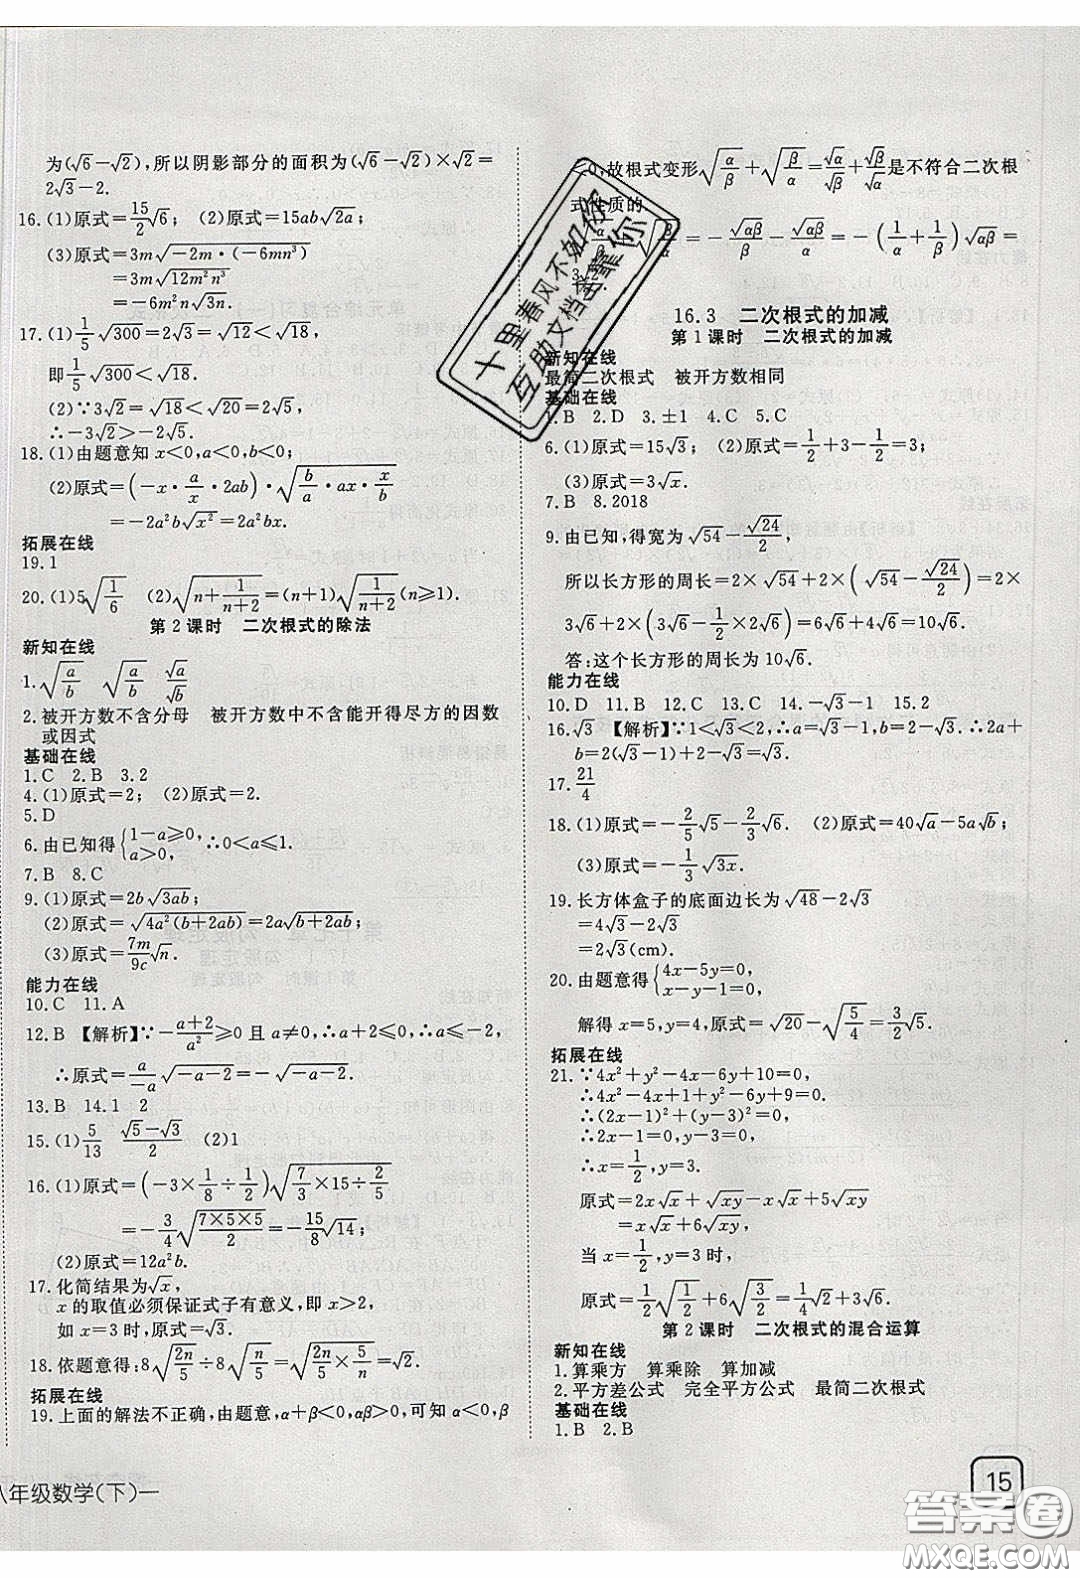 为(√6－√2),所以阴影部分的面积为(√6－√2)×√2＝
2√3－2.
16.(1)原式＝15/2√6; (2)原式＝15ab√(2a);
(3)原式＝3m√(－2m·(－6mn³))
＝3m√(12m²n³)
＝－6m²n√(3n).
17.(1)1/5√300＝2√3＝√12＜√18,
即1/5√300＜√18.
(2)∵3√2＝√18＜√20＝2√5,
∴－3√2＞－2√5.
18.(1)由题意知 x＜0,a＜0,b＜0;
(2)原式＝(－x·a/x·2ab)·√(b/a·ax·x/b)
＝－2a²b√(x²)＝2a²bx.
拓展在线
19.1
20.(1)5√(1/6) (2)√(n＋1/(n＋2))＝(n＋1)√(1/(n＋2))(n≥1).
第2课时 二次根式的除法
新知在线
1.√(a/b) √(a/b) √a/√b
2.被开方数不含分母 被开方数中不含能开得尽方的因数
或因式
基础在线
1.C 2.B 3.2
4.(1)原式＝2; (2)原式＝2.
5.D
6.由已知得{1－a≥0, a＞0, ∴0＜a≤1.
7.B 8.C
9.(1)原式＝2b√(3ab);
(2)原式＝√(4a²(b＋2ab))＝2a√(b＋2ab);
(3)原式＝7m/9c√n.
能力在线
10.C 11.A
12.B 【解析】∵－(a＋2)/a²≥0 且 a≠0,∴a＋2≤0,∴a≤－2,
∴原式＝a/－a√(－a－2)＝－√(－a－2).
13.B 14.1 2
15.(1)5/13 (√5－√3)/2 (2)1
16.(1)原式＝(－3×1/8÷1/2)√(7/3×15÷2/5)
＝－3/4√((7×5×5)/2)＝－15/8√14;
(2)原式＝12a²b.
17.化简结果为√x,
x 的取值必须保证式子有意义,即 x＞2,
如 x＝3 时,原式＝√3.
18.依题意得:8√(2n/5)÷8√(n/5)＝√(2n/5×5/n)＝√2.
拓展在线
19.上面的解法不正确,由题意,α＋β＜0,αβ＞0,可知 α＜0,β
＜0,故根式变形√(α/β)＋√(β/α)＝√α/√β＋√β/√α是不符合二次根
式性质的
＝－√(αβ)/β－√(αβ)/α＝－(1/α＋1/β)√(αβ)＝
16.3 二次根式的加减
第1课时 二次根式的加减
新知在线
最简二次根式 被开方数相同
基础在线
1.B 2.D 3.±1 4.C 5.C
6.(1)原式＝15√3; (2)原式＝1/2＋3－1/2＝3;
(3)原式＝3√x.
7.B 8.2018
9.由已知,得宽为√54－√24/2,
所以长方形的周长＝2×√54＋2×(√54－√24/2)＝2×
3√6＋2×(3√6－1/2×2√6)＝6√6＋4√6＝10√6.
答:这个长方形的周长为10√6.
能力在线
10.D 11.B 12.C 13.C 14.－√3－1 15.2
16.√3 【解析】∵1＜√3＜2,∴a＝√3－1,b＝2－√3.∴2a＋
b＝2(√3－1)＋2－√3＝√3.
17.21/4
18.(1)原式＝－2/5√5－2/3√6. (2)原式＝40√a－5a√b;
(3)原式＝－1/3√(3x).
19.长方体盒子的底面边长为√48－2√3
＝4√3－2√3
＝2√3(cm).
20.由题意得{4x－5y＝0, x－y－1＝0,
解得 x＝5,y＝4,原式＝√20－√(5/4)＝3/2√5.
拓展在线
21.∵4x²＋y²－4x－6y＋10＝0,
∴4x²－4x＋y²－6y＋9＝0.
∴(2x－1)²＋(y－3)²＝0.
∴x＝1/2,y＝3.
原式＝2x√x＋√(xy)－x√x＋5√(xy)
＝x√x＋6√(xy).
当 x＝1/2,y＝3 时,
原式＝1/2√(1/2)＋6√(3/2)＝1/4√2＋3√6.
第2课时 二次根式的混合运算
新知在线
1.算乘方 算乘除 算加减
2.平方差公式 完全平方公式 最简二次根式
基础在线
1.B 2.B
八年级数学(下)一
15
十里春风不如你
互助文档 靠你
答案圈
MXQE.COM